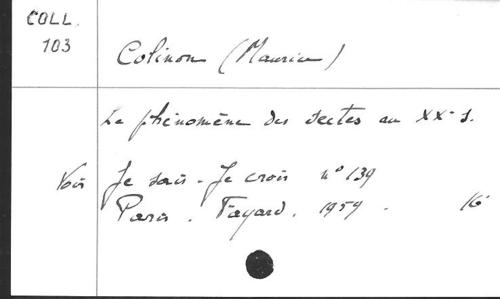 COLL.
103
Colinon (Maurice)
Le phénomène des sectes au XXe s.
Voir Je sais - Je crois n° 139
Paris. Fayard. 1959. 16°